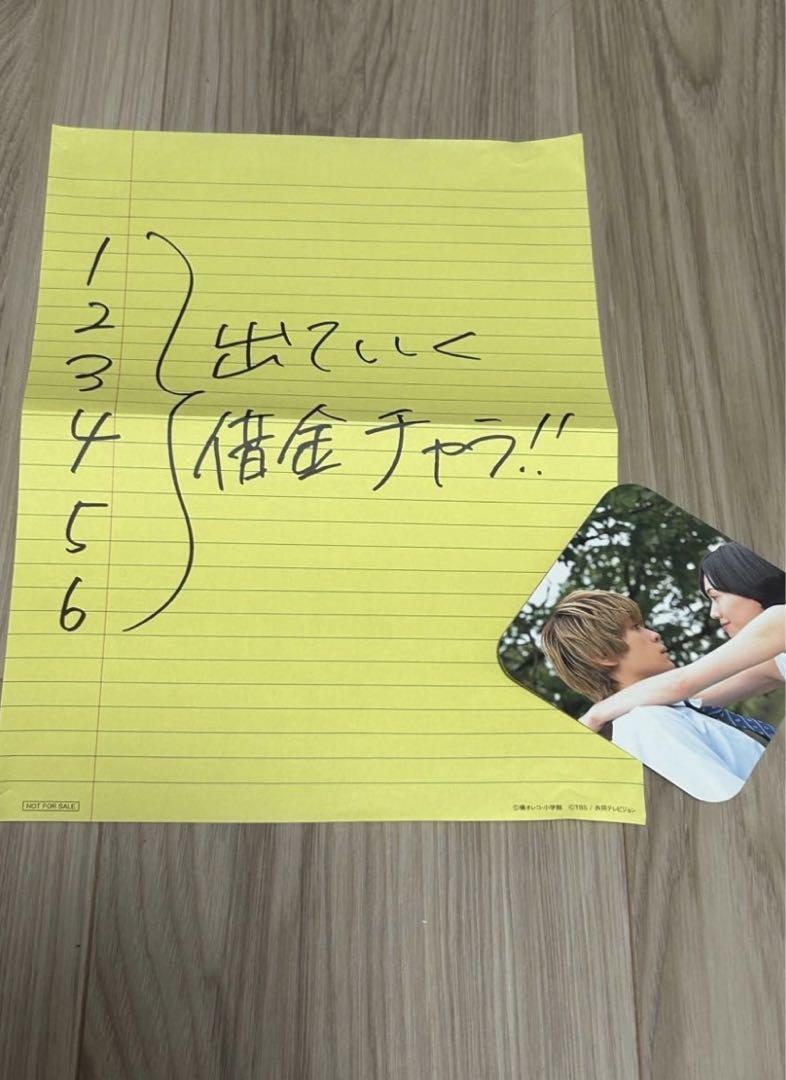 1
2
3
出ていく
4
借金チャラ!!
5
6
NOT FOR SALE
©橘オレコ・小学館 ©TBS / 共同テレビジョン